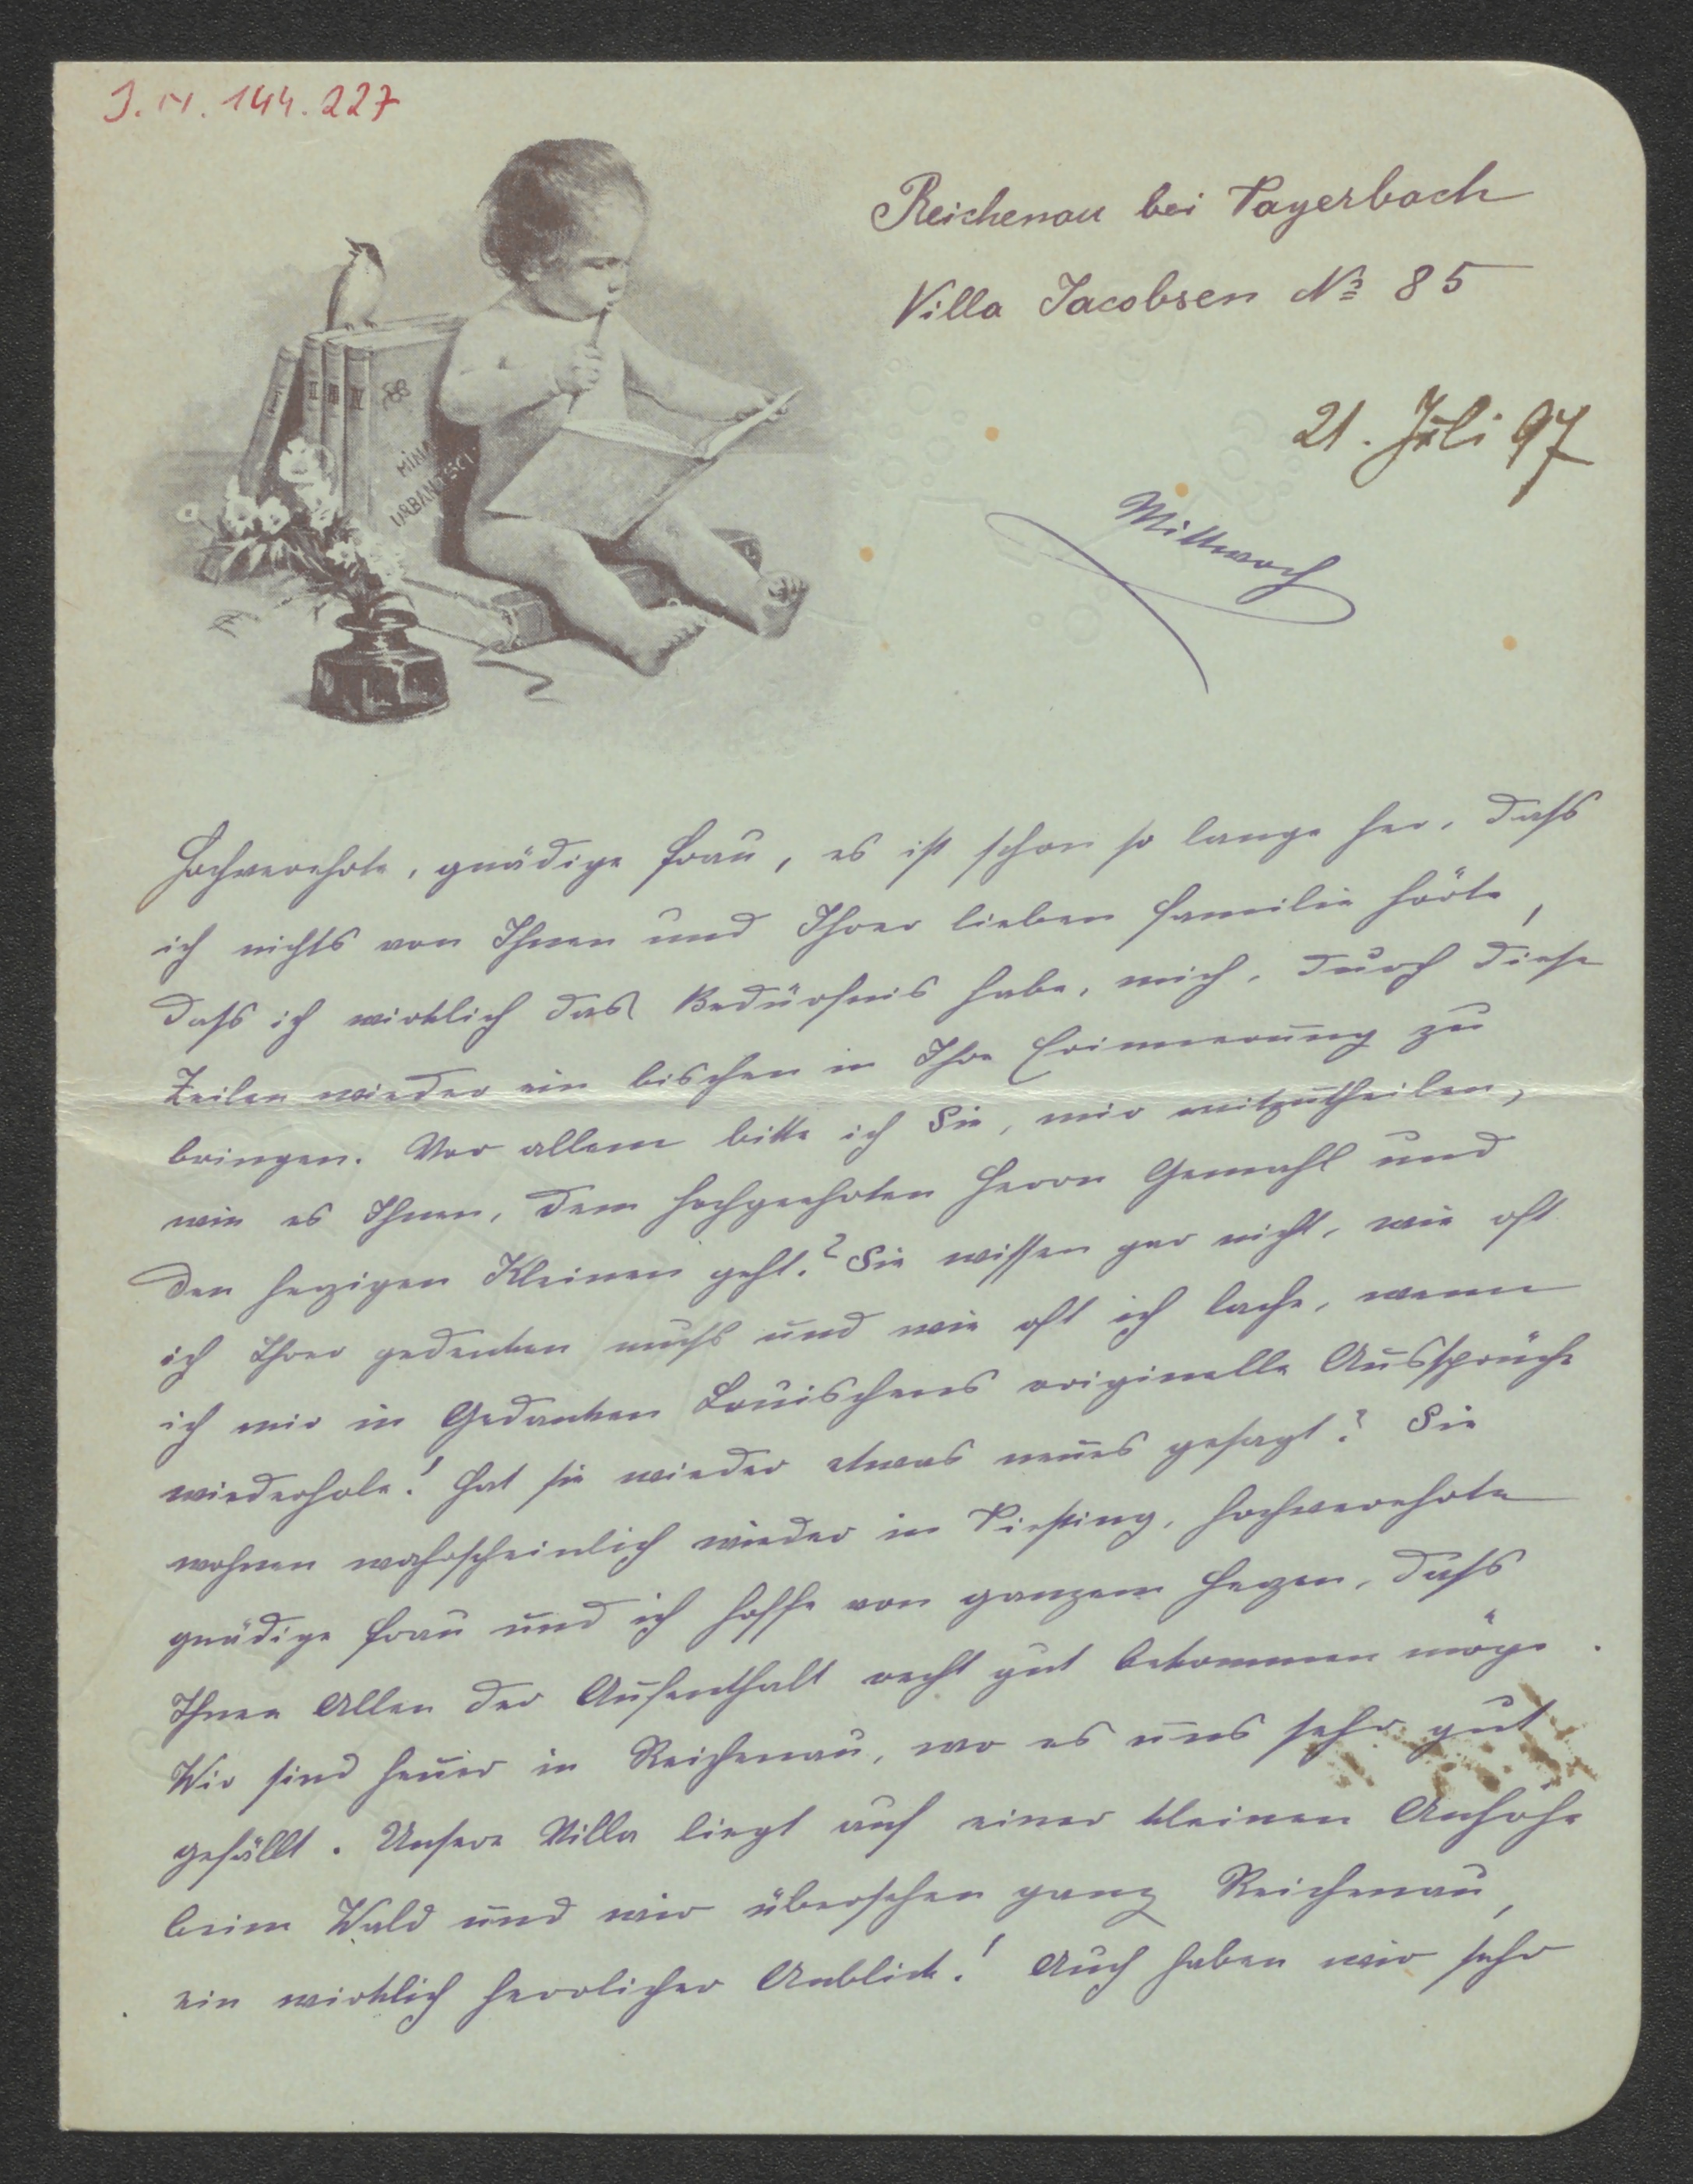 J. N. 144.227
Reichenau bei Payerbach
Villa Jacobsen No 85
21. Juli 97
Mittwoch
MINA
URBANTSCH
Hochverehrte, gnädige Frau, es ist schon so lange her, dass
ich nichts von Ihnen und Ihrer lieben Familie hörte,
dass ich wirklich das Bedürfnis habe, mich, durch diese
Zeilen wieder ein bischen in Ihre Erinnerung zu
bringen. Vor allem bitte ich Sie, mir mitzutheilen,
wie es Ihnen, dem hochgeehrten Herrn Gemahl und
den herzigen Kleinen geht.? Sie wissen gar nicht, wie oft
ich Ihrer gedenken muss und wie oft ich lache, wenn
ich mir in Gedanken Louischens originelle Aussprüche
wiederhole! Hat sie wieder etwas neues gesagt? Sie
wohnen wahrscheinlich wieder in Piesting, hochverehrte
gnädige Frau und ich hoffe von ganzem Herzen, dass
Ihnen Allen der Aufenthalt recht gut bekommen möge.
Wir sind heuer in Reichenau, wo es uns sehr gut
gefällt. Unsere Villa liegt auf einer kleinen Anhöhe
beim Wald und wir übersehen ganz Reichenau,
ein wirklich herrlicher Anblick! Auch haben wir sehr